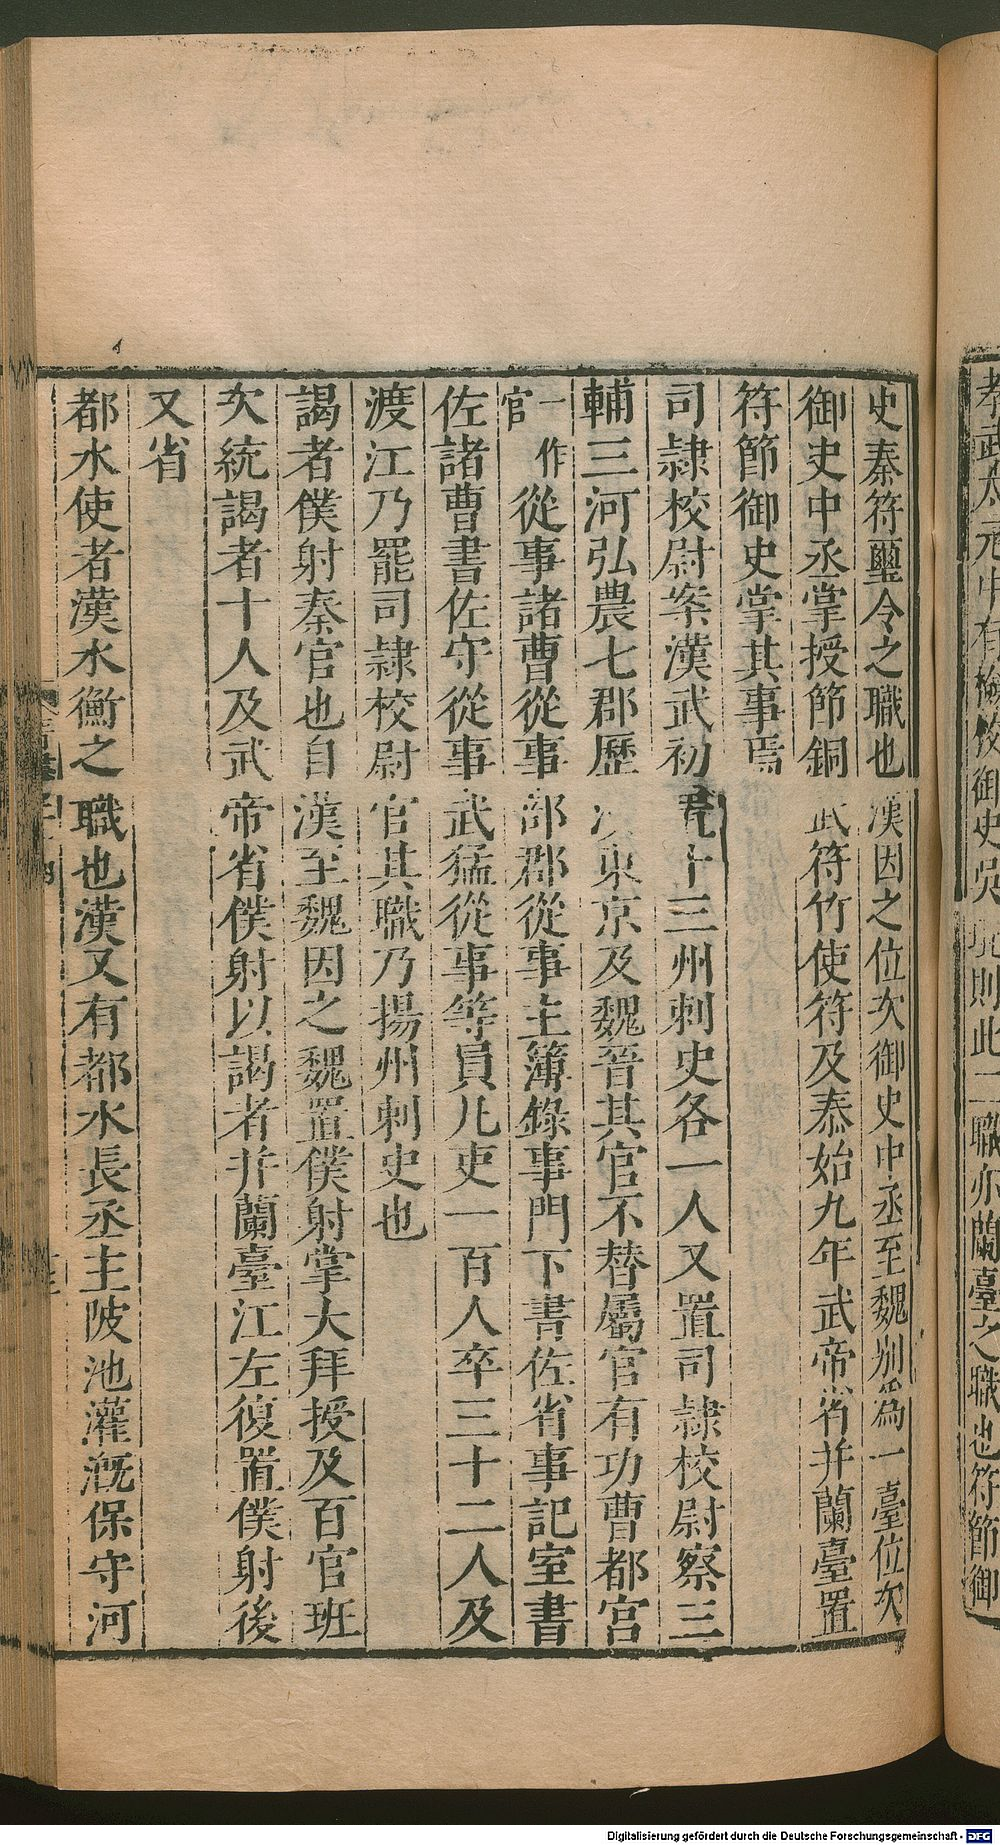 孝武太元中有檢校御史吳琨則此二職亦蘭臺之職也符節御
史秦符璽令之職也漢因之位次御史中丞至魏別爲一臺位次
御史中丞掌授節銅武符竹使符及泰始九年武帝省并蘭臺置
符節御史掌其事焉
司隸校尉案漢武初置十三州刺史各一人又置司隸校尉察三
輔三河弘農七郡歷漢東京及魏晉其官不替屬官有功曹都官
一作官從事諸曹從事部郡從事主簿錄事門下書佐省事記室書
佐諸曹書佐守從事武猛從事等員凡吏一百人卒三十二人及
渡江乃罷司隸校尉官其職乃揚州刺史也
謁者僕射秦官也自漢至魏因之魏置僕射掌大拜授及百官班
次統謁者十人及武帝省僕射以謁者并蘭臺江左復置僕射後
又省
都水使者漢水衡之職也漢又有都水長丞主陂池灌漑保守河
Digitalisierung gefördert durch die Deutsche Forschungsgemeinschaft - DFG